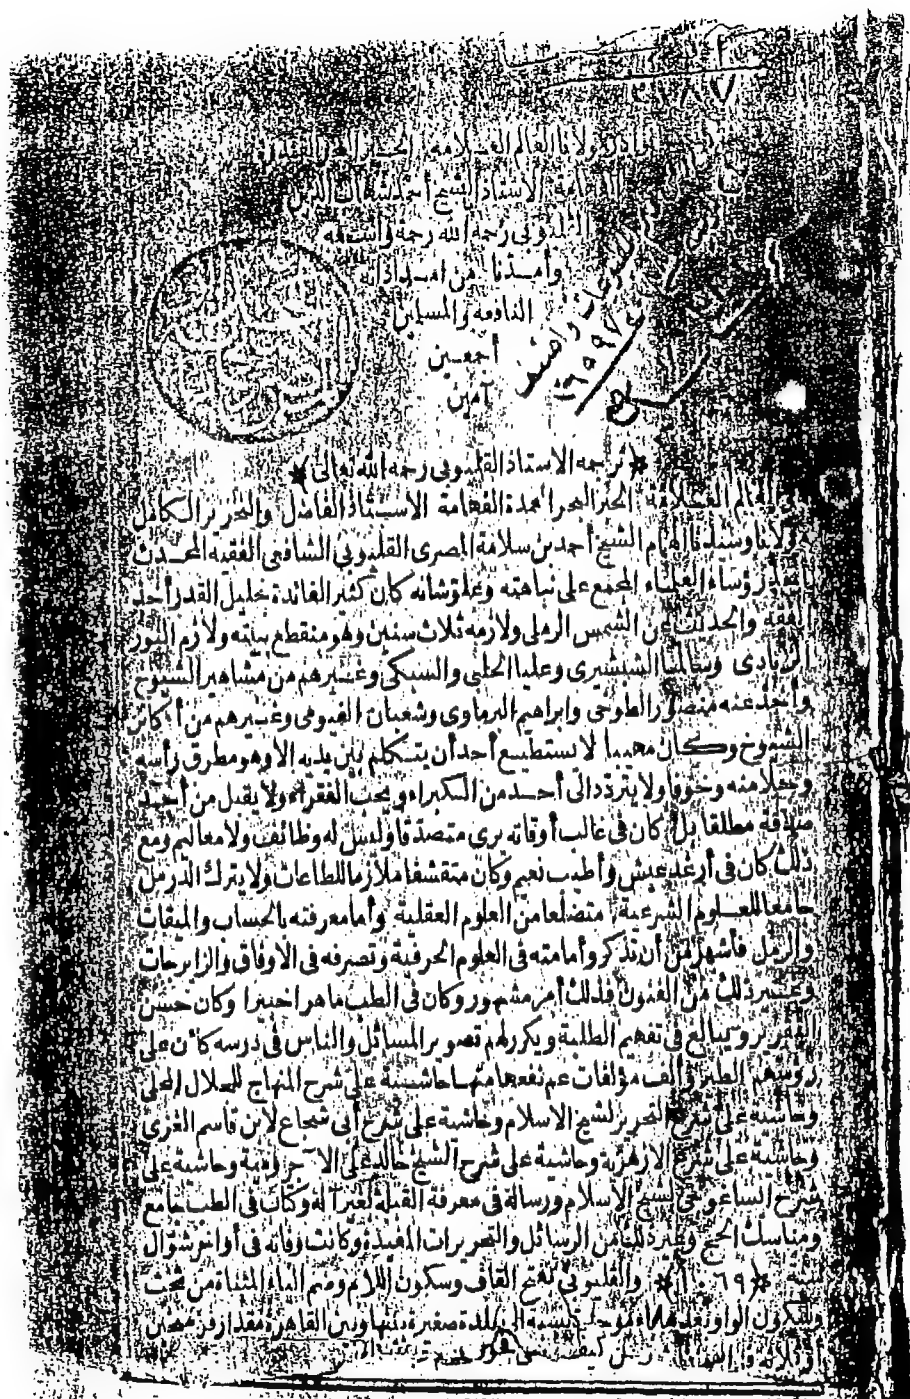 ٢١٨٧
مولانا العالم العلامة الحبر البحر
الفهامة الاستاذ الشيخ أحمد شهاب الدين
القليوبى رحمه الله رحمة واسعة
وأمدنا من امداداته
النافعة والمسلمين
أجمعين
آمين
* ترجمة الاستاذ القليوبى رحمه الله تعالى *
العالم العلامة الحبر البحر العمدة الفهامة الاستاذ الفاضل والنحرير الكامل
مولانا وسيدنا الهمام الشيخ أحمد بن سلامة المصرى القليوبى الشافعى الفقيه المحدث
رؤساء العلماء المجمع على نباهته وعلو شأنه كان كثير الفائدة جليل القدر أخذ
الفقه والحديث عن الشمس الرملى ولازمه ثلاث سنين وهو منقطع ببيته ولازم النور
الزيادى وسالما الشبشيرى وعليا الحلبى والسبكى وغيرهم من مشاهير الشيوخ
وأخذ عنه منصور الطوخى وابراهيم البرماوى وشعبان الفيومى وغيرهم من أكابر
الشيوخ وكان مهيبا لا يستطيع أحد أن يتكلم بين يديه الا وهو مطرق رأسه
وجلا منه وخوفا ولا يتردد الى أحد من الكبراء ويحب الفقراء ولا يقبل من أحد
صدقة مطلقا بل كان فى غالب أوقاته يرى متصدقا وليس له وظائف ولا معاليم ومع
ذلك كان فى أرغد عيش وأطيب نعيم وكان متقشفا ملازما للطاعات ولا يترك الدرس
جامعا للعلوم الشرعية متضلعا من العلوم العقلية وأما معرفته بالحساب والميقات
والرمل فأشهر من أن تذكر وامامته فى العلوم الحرفية وتصرفه فى الاوفاق والزايرجات
وغير ذلك من الفنون فذلك أمر مشهور وكان فى الطب ماهرا خبيرا وكان حسن
التقرير ويبالغ فى تفهيم الطلبة ويكرر لهم تصوير المسائل والناس فى درسه كأن على
رؤسهم الطير وألف مؤلفات عم نفعها منها حاشية على شرح المنهاج للجلال المحلى
وحاشية على شرح التحرير لشيخ الاسلام وحاشية على شرح أبى شجاع لابن قاسم الغزى
وحاشية على شرح الازهرية وحاشية على شرح الشيخ خالد على الآجرومية وحاشية على
شرح ايساغوجى لشيخ الاسلام ورسالة فى معرفة القبلة بغير آلة وكتاب فى الطب جامع
ومناسك الحج وغير ذلك من الرسائل والتحريرات المفيدة وكانت وفاته فى أواخر شوال
سنة * ١٠٦٩ * والقليوبى بفتح القاف وسكون اللام وضم الياء المثناة من تحت
وسكون الواو بعدها باء موحدة نسبة الى بلدة صغيرة بينها وبين القاهرة مقدار فرسخين
أو ثلاثة